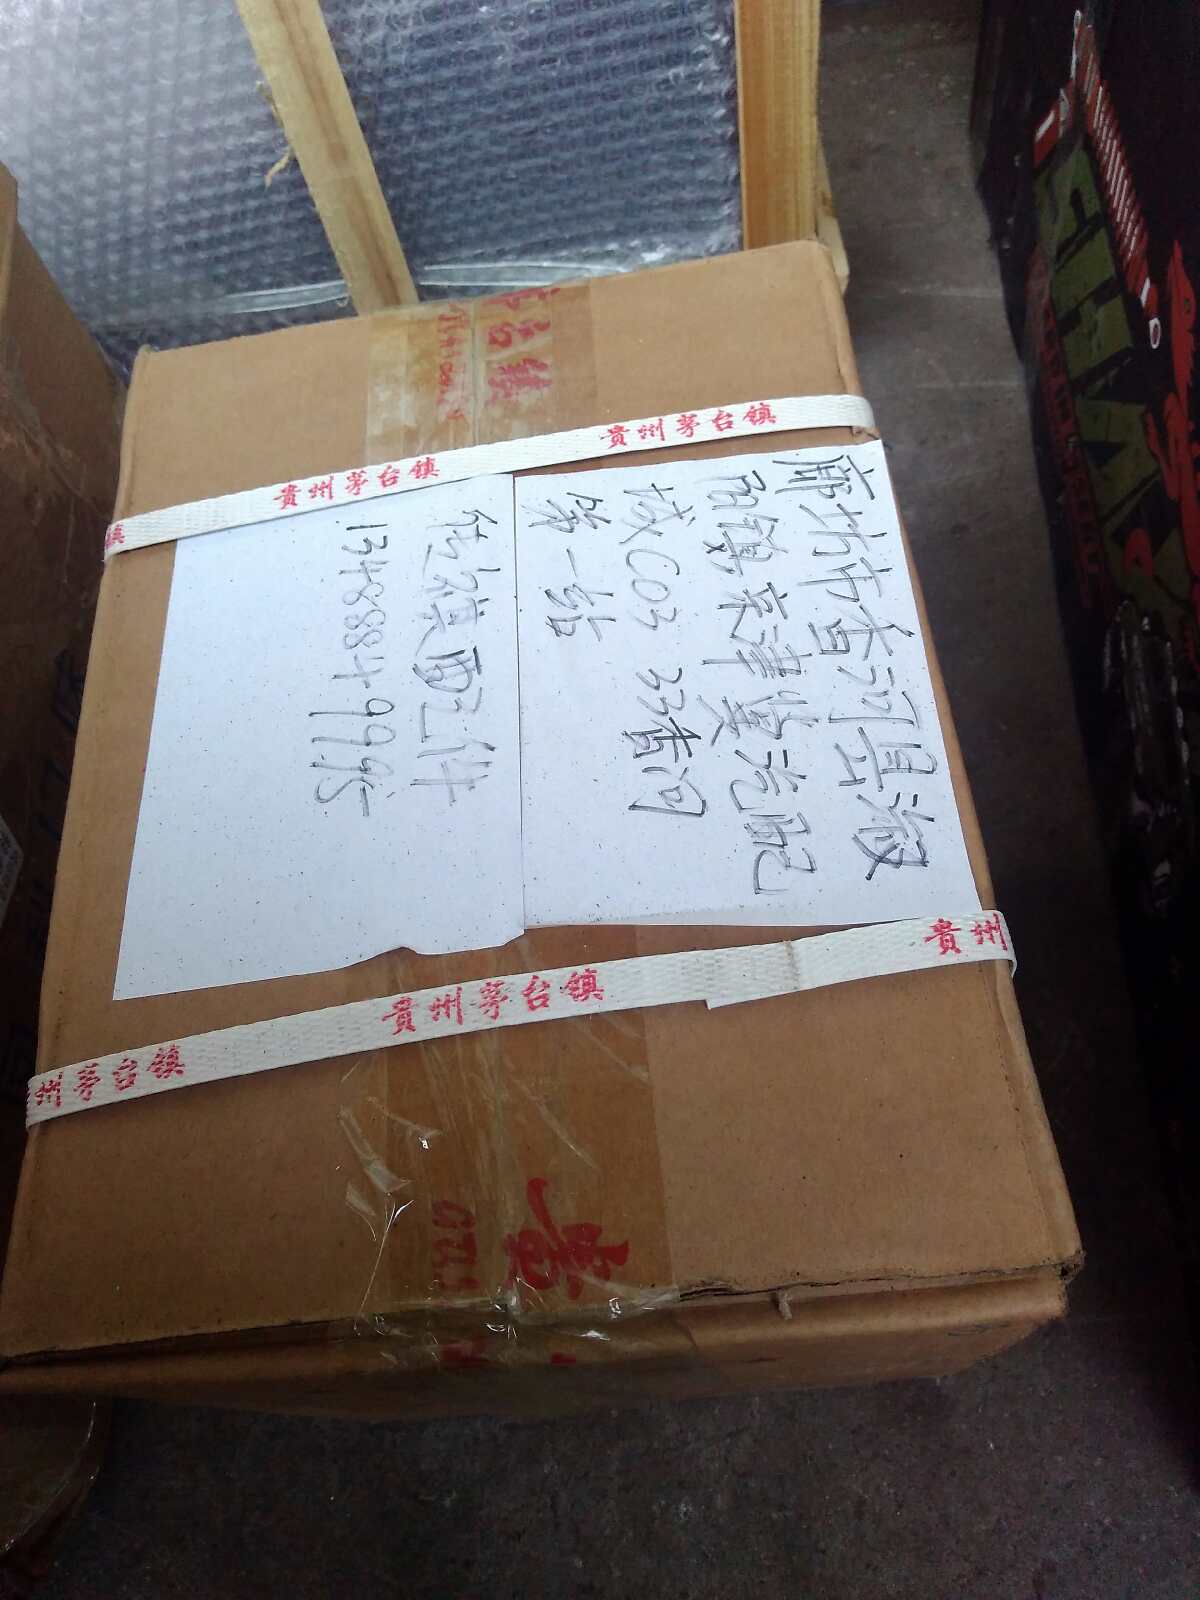 貴州茅台镇
貴州茅台镇
廊坊市香河县淑
阳镇京津冀汽配
城C03 33香河
第一站
13488849995
貴州
貴州茅台镇
州茅台镇